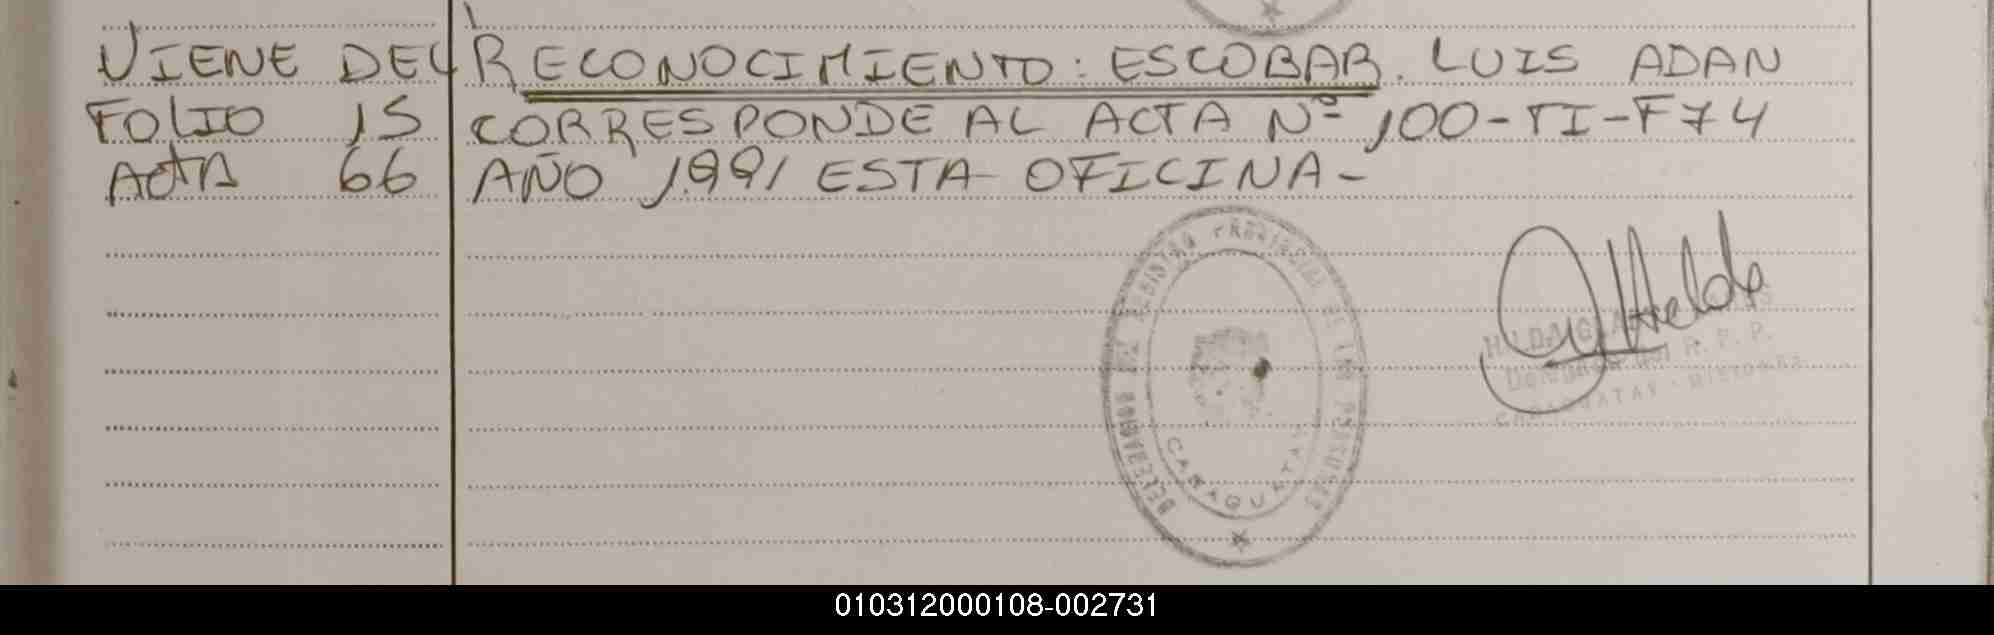 VIENE DEL RECONOCIMIENTO: ESCOBAR. LUIS ADAN
FOLIO 15 CORRESPONDE AL ACTA Nº 100-TI-F74
ACTA 66 AÑO 1991 ESTA OFICINA-
DELEGADOS DEL REGISTRO PROVINCIAL DE LAS PERSONAS
CARAGUATAY
R. P. P.
CARAGUATAY - MISIONES
010312000108-002731